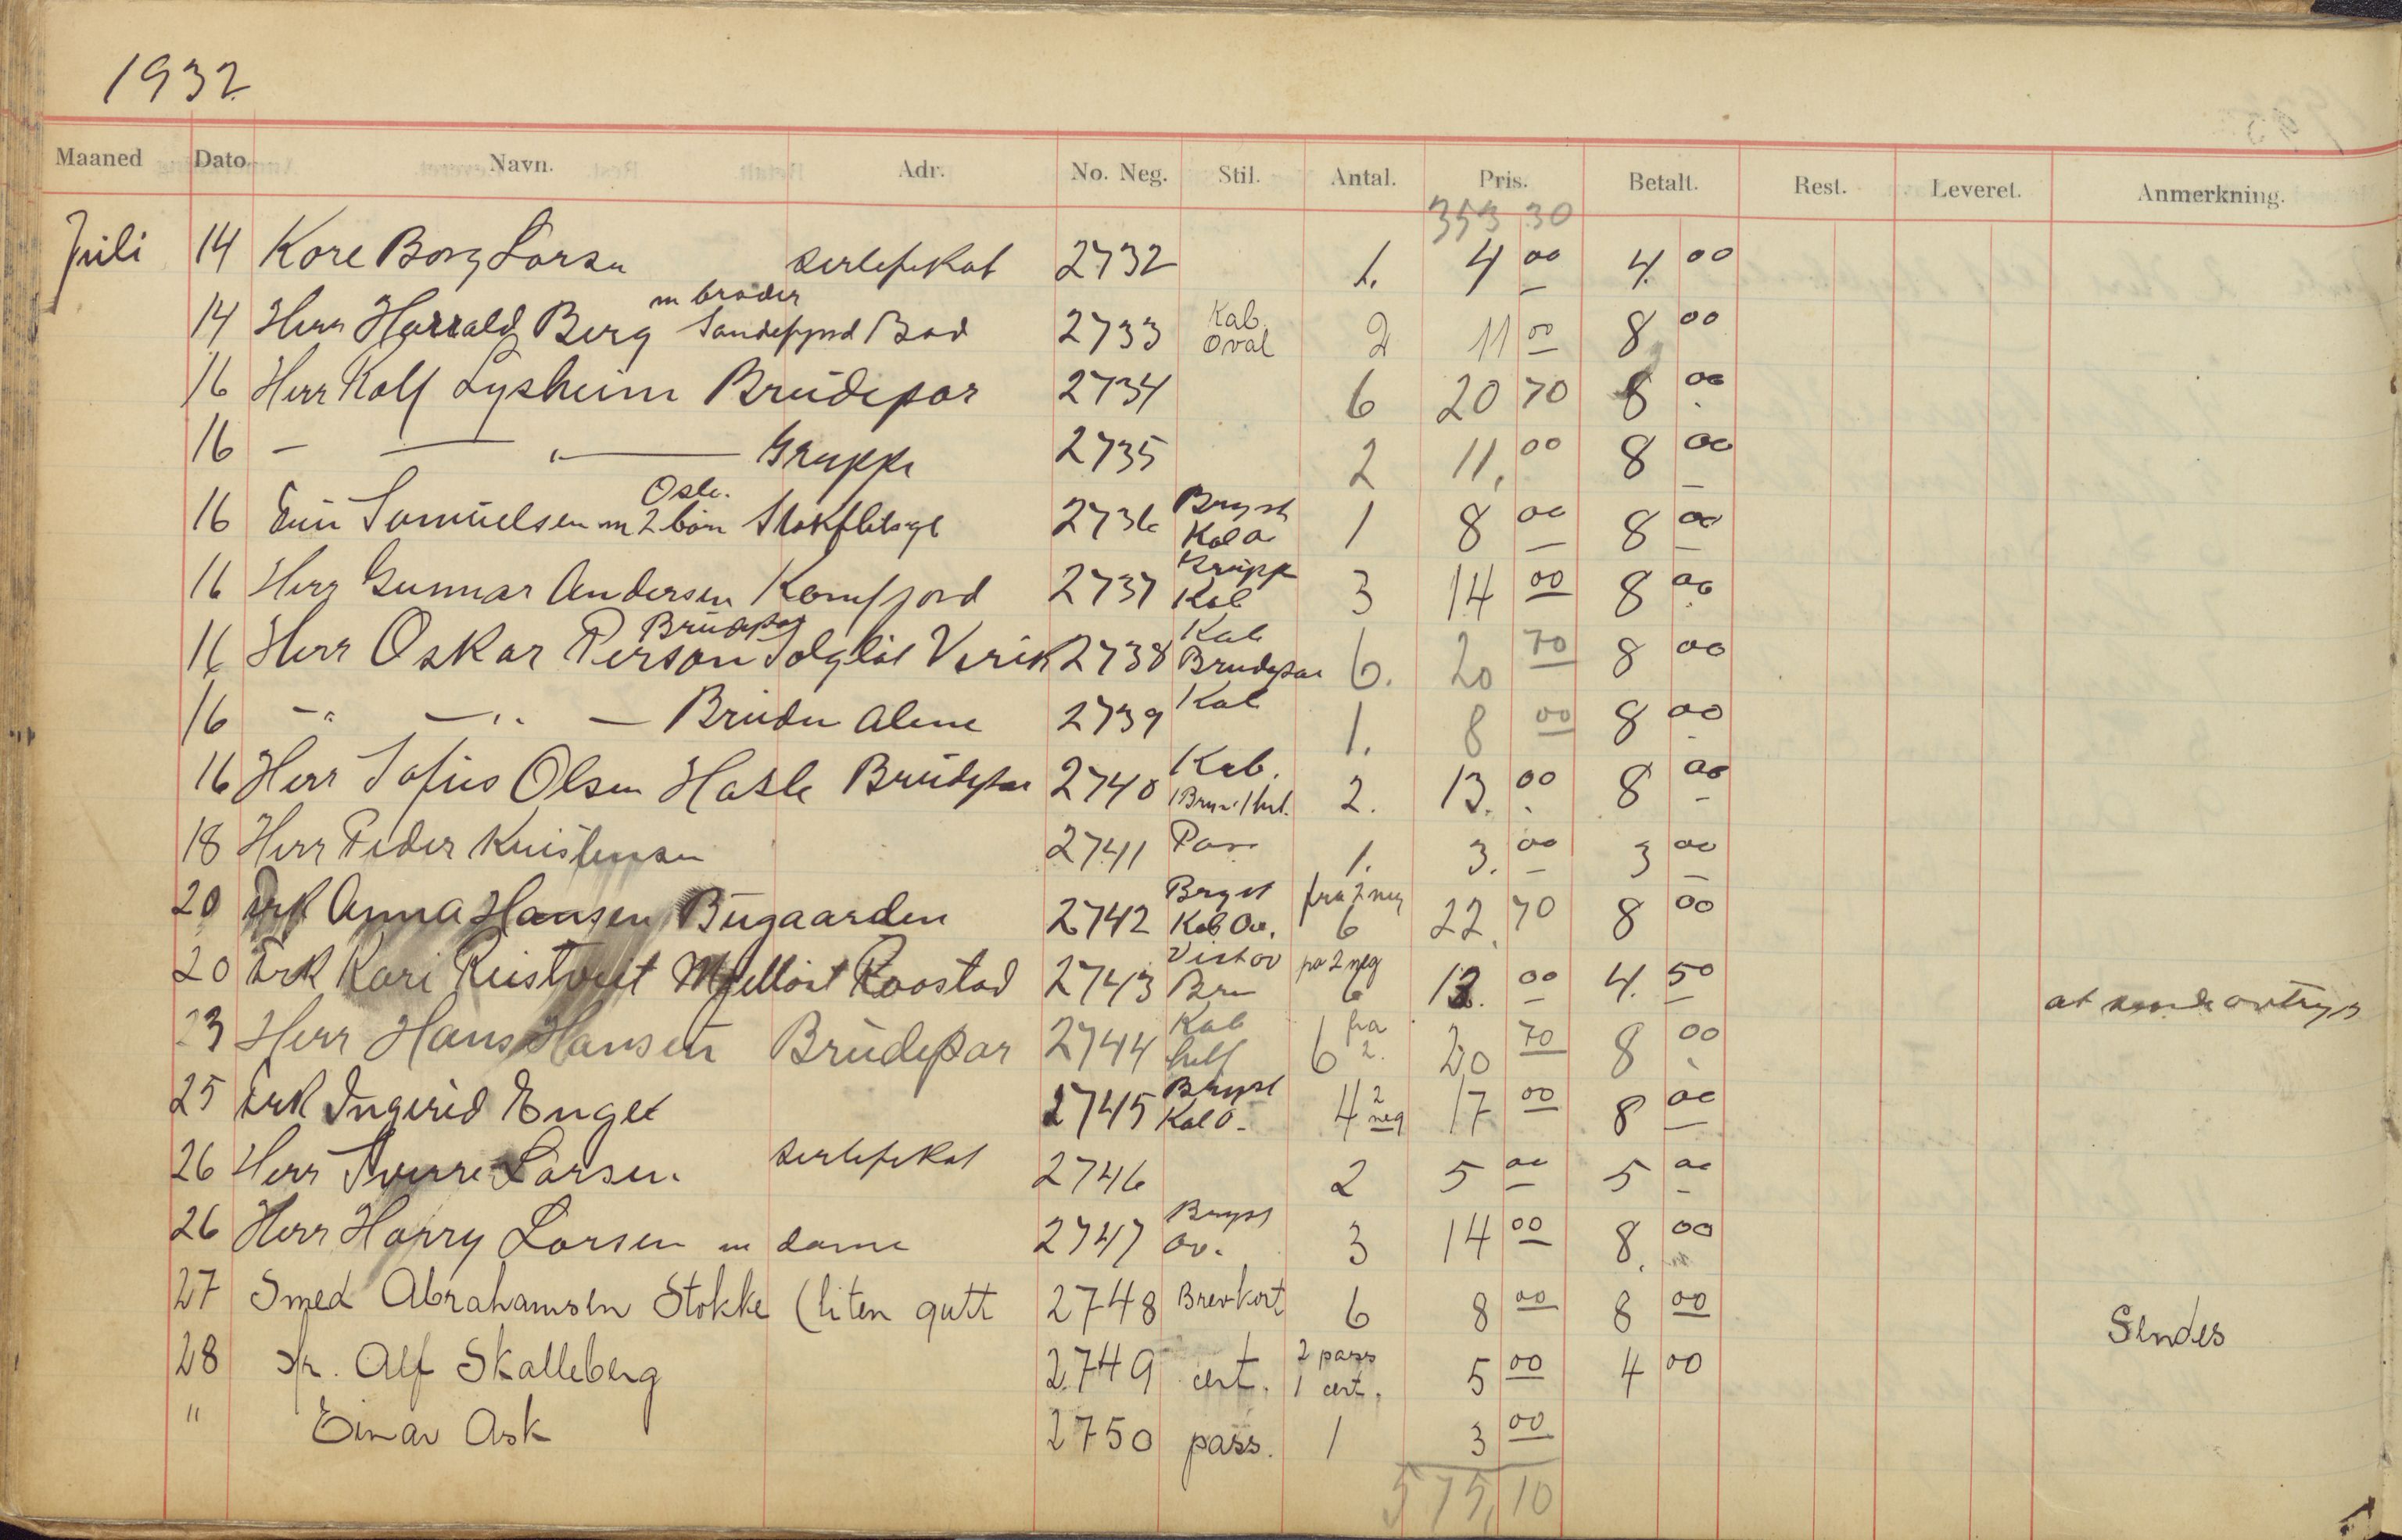 1932
Maaned Dato Navn. Adr. No. Neg. Stil. Antal. Pris. Betalt. Rest. Leveret. Anmerkning.
353 30
Juli 14 Kore Borg Larsen sertefikat 2732 1. 4 00 4. 00
m broder
14 Herr Harrald Berg Sandefjord Bad 2733 Kab. Oval 2 11 00 8 00
16 Herr Rolf Lysheim Brudepar 2734 6 20 70 8 00
16 — — " — Gruppe 2735 2 11, 00 8 00
Oslo.
16 Samuelsen m 2 barn 2736 Bryst Kab O 1 8 00 8 00
16 Herr Gunnar Andersen 2737 Grupp Kab 3 14 00 8 00
Brudepar
16 Herr Oskar Person Solgløt 2738 Kab Brudepar 6. 20 70 8 00
16 — " — " — Bruden alene 2739 Kab 1. 8 00 8 00
16 Herr Sofus Olsen Hasle Brudepar 2740 Kab. 2. 13. 00 8 00
18 Herr Peder Kristensen 2741 Pass 1. 3. 00 3 00
20 Frk Anna Hansen Bugaarden 2742 Bryst Kab Ov. fra 2 neg 6 22, 70 8 00
20 Frk Kari Mjelløst Raastad 2743 Visit ov Bru pa 2 neg 6 13. 00 4. 50 at sende
23 Herr Hans Hansen Brudepar 2744 Kab helf 6 fra 2. 20 70 8 00
25 Frk Ingerid Enget 2745 Bryst Kab O. 4 2 neg 17 00 8 00
26 Herr Sverre Larsen. sertefikat 2746 2 5 00 5 00
26 Herr Harry Larsen m dame 2747 Bryst Ov. 3 14 00 8. 00
27 Smed Abrahamsen Stokke (liten gutt 2748 Brevkort 6 8 00 8 00 Sendes
28 Hr. Alf Skalleberg 2749 cert. 2 pass 1 cert. 5 00 4 00
" Einar Ask 2750 pass. 1 3 00
575,10